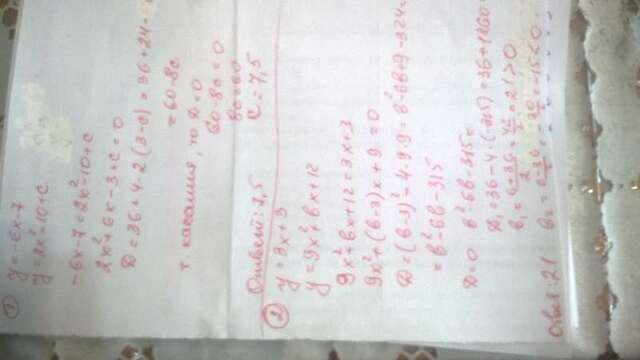 ①
y = -6x-7
y = 2x²-10+c
-6x-7 = 2x²-10+c
2x²+6x-3+c=0
D = 36+4·2(3-c) = 36+24-
=60-8c
т. касания, то D=0
60-8c=0
8c=60
c=7,5
Ответ: 7,5
②
y = 3x+3
y = 9x²+bx+12
9x²+bx+12=3x+3
9x²+(b-3)x+9=0
D=(b-3)²-4·9·9=b²-6b+9-324=
=b²-6b-315
D=0 b²-6b-315=
D₁=36-4·(-315)=36+1260
b₁ = = 21>0
b₂ = = -15<0
Ответ: 21